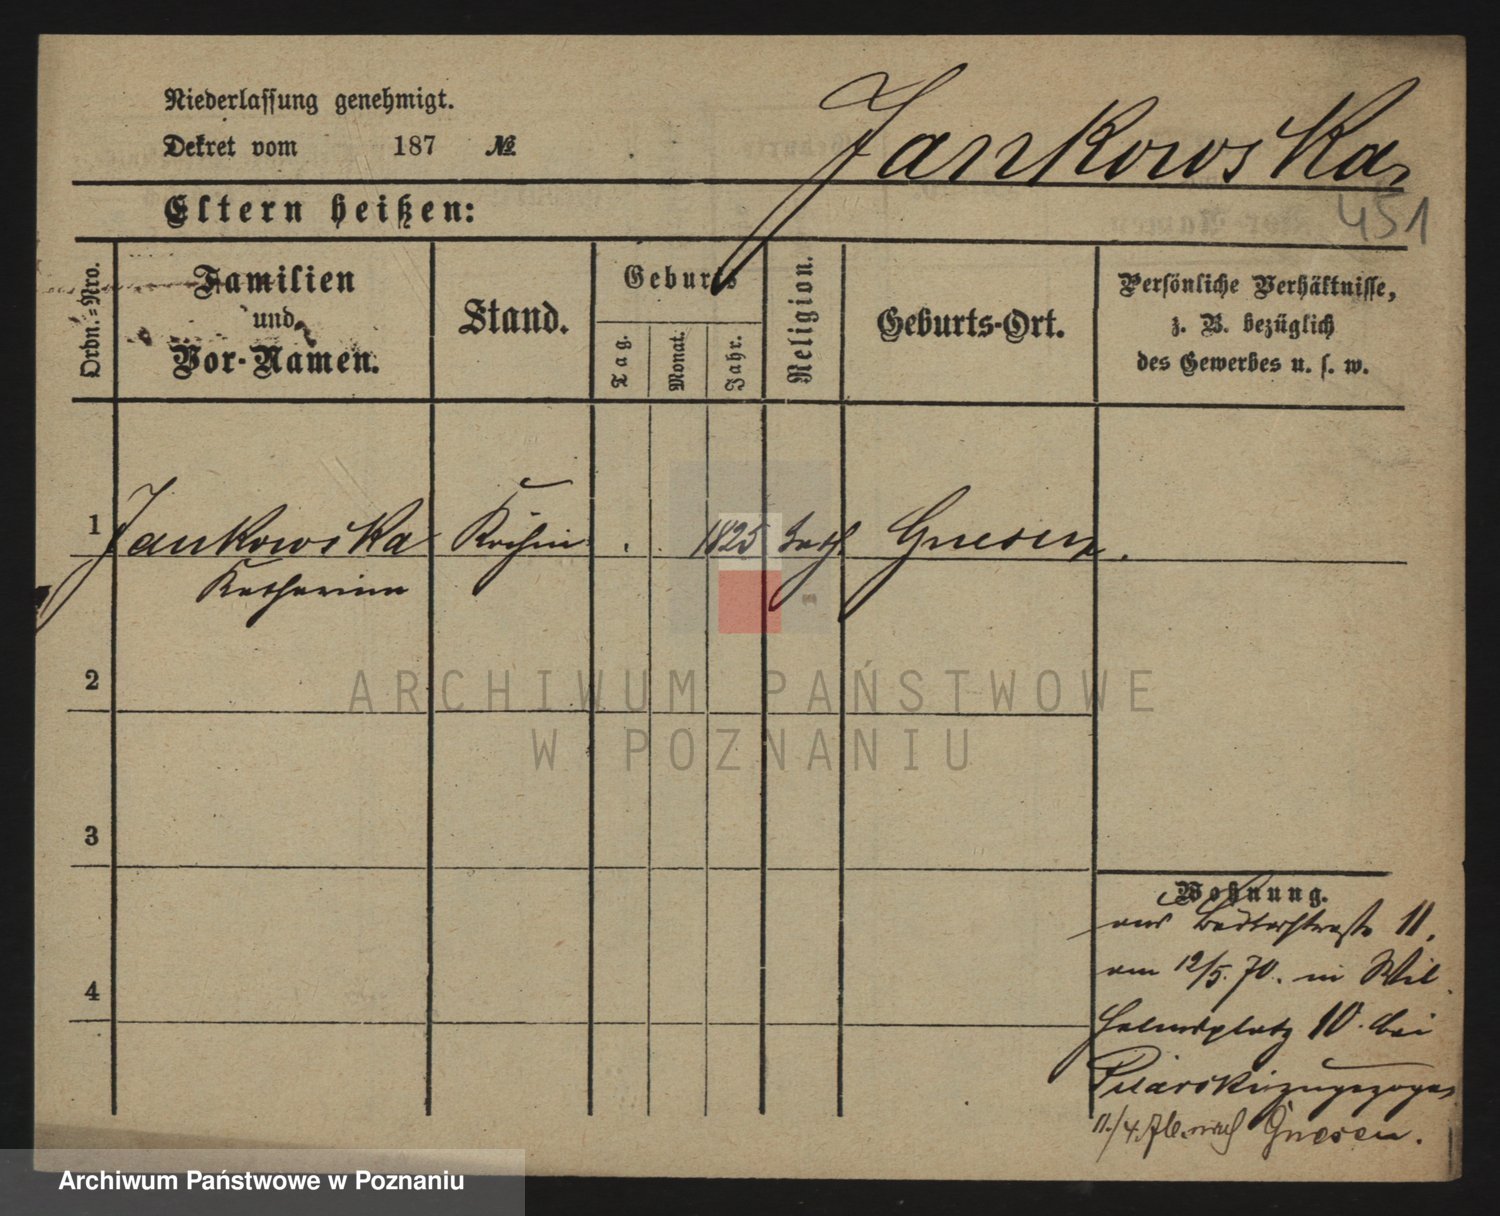 Niederlassung genehmigt.
Dekret vom 187 №
Jankowska
451
Eltern heißen:
Ordn.-Nro.
Familien
und
Vor-Namen.
Stand.
Geburts
Tag.
Monat.
Jahr.
Religion.
Geburts-Ort.
Persönliche Verhältnisse,
z. B. bezüglich
des Gewerbes u. s. w.
1 Jankowska Köchin 1825 kath Gnesen
Katharina
2
3
4
Wohnung.
aus 11.
am 12/5. 70. in Wil
helmsplatz 10. bei
zugezogen
11./4. nach Gnesen.
ARCHIWUM PAŃSTWOWE
W POZNANIU
Archiwum Państwowe w Poznaniu